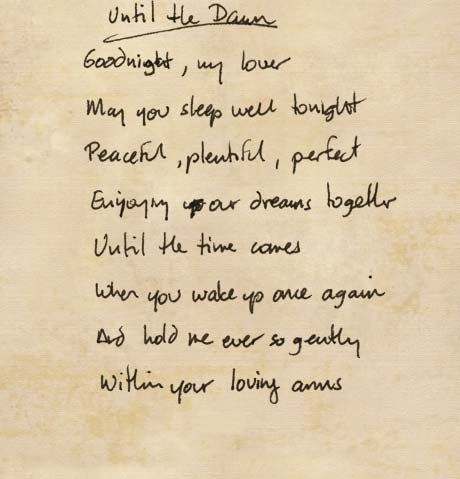 Until the Dawn
Goodnight, my lover
May you sleep well tonight
Peaceful, plentiful, perfect
Enjoying our dreams together
Until the time comes
When you wake up once again
And hold me ever so gently
Within your loving arms